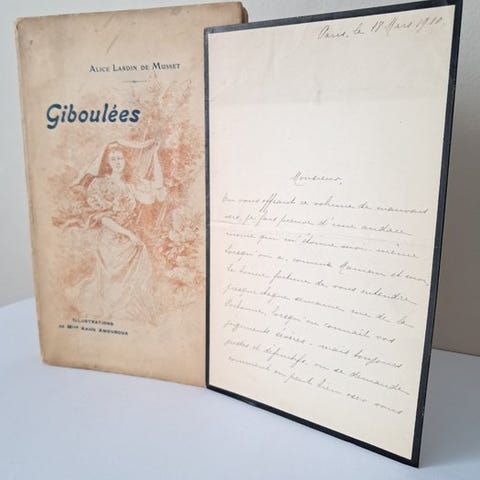 ALICE LARDIN DE MUSSET
Giboulées
ILLUSTRATIONS
DE MME ANAÏS AMOUROUX
Paris, le 18 Mars 1910.
Monsieur,
En vous offrant ce volume de mauvais
vers, je fais preuve d'une audace
qui m'étonne moi-même.
Lorsqu'on a, comme Maman et moi,
la bonne fortune de vous entendre
presque chaque semaine, rue de la
lorsqu'on connaît vos
jugements sévères, mais toujours
justes et définitifs, on se demande
comment on peut bien oser vous